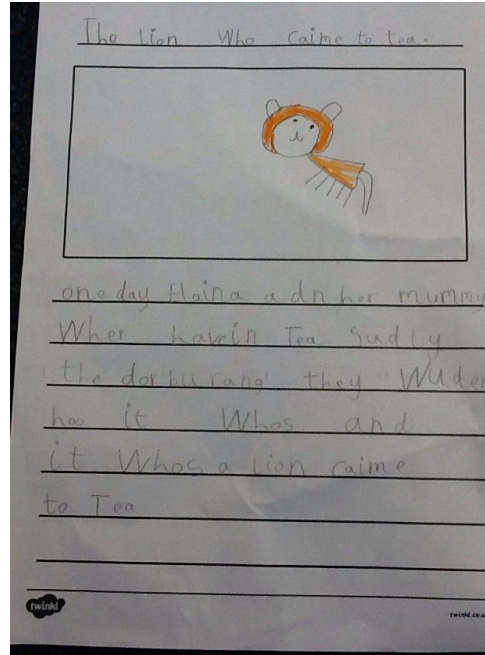 The lion Who caime to tea.
one day Elaina adn her mummy
Wher havein Tea Sudly
the dorbll rang they Wuder
hoo it Whos and
it Whos a Lion caime
to Tea
twinkl
twinkl.co.u